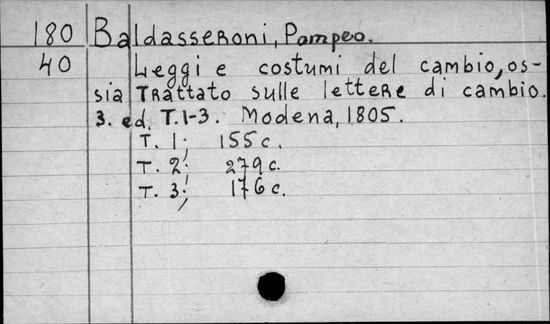 180 Baldasseroni, Pompeo.
40 Leggi e costumi del cambio, os-
sia Trattato sulle lettere di cambio.
3. ed. T. 1-3. Modena, 1805.
T. 1; 155 c.
T. 2; 279 c.
T. 3; 176 c.